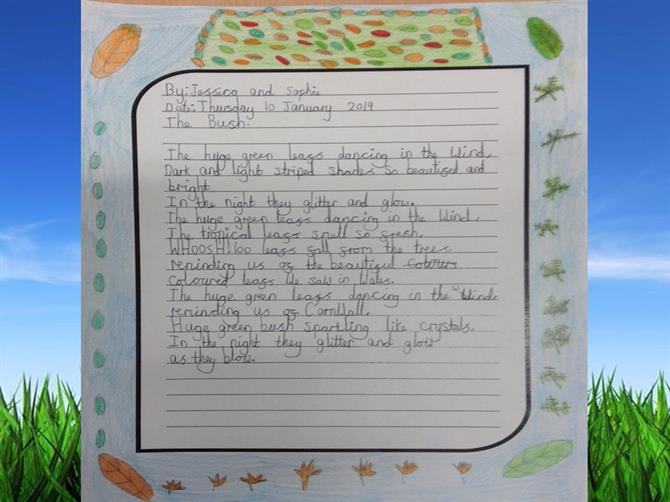 By: Jessica and Sophie
Date: Thursday 10 January 2019
The Bush.
The huge green leafs dancing in the Wind.
Dark and light striped shades so beautiful and
bright.
In the night they glitter and glow.
The huge green leafs dancing in the Wind.
The tropical leafs smell so fresh.
WHOOSH! 100 leafs fall from the trees
reminding us of the beautiful colours
coloured leafs We saw in Wales.
The huge green leafs dancing in the Wind
reminding us of CornWall.
Huge green bush sparkling like crystals.
In the night they glitter and glow
as they blow.